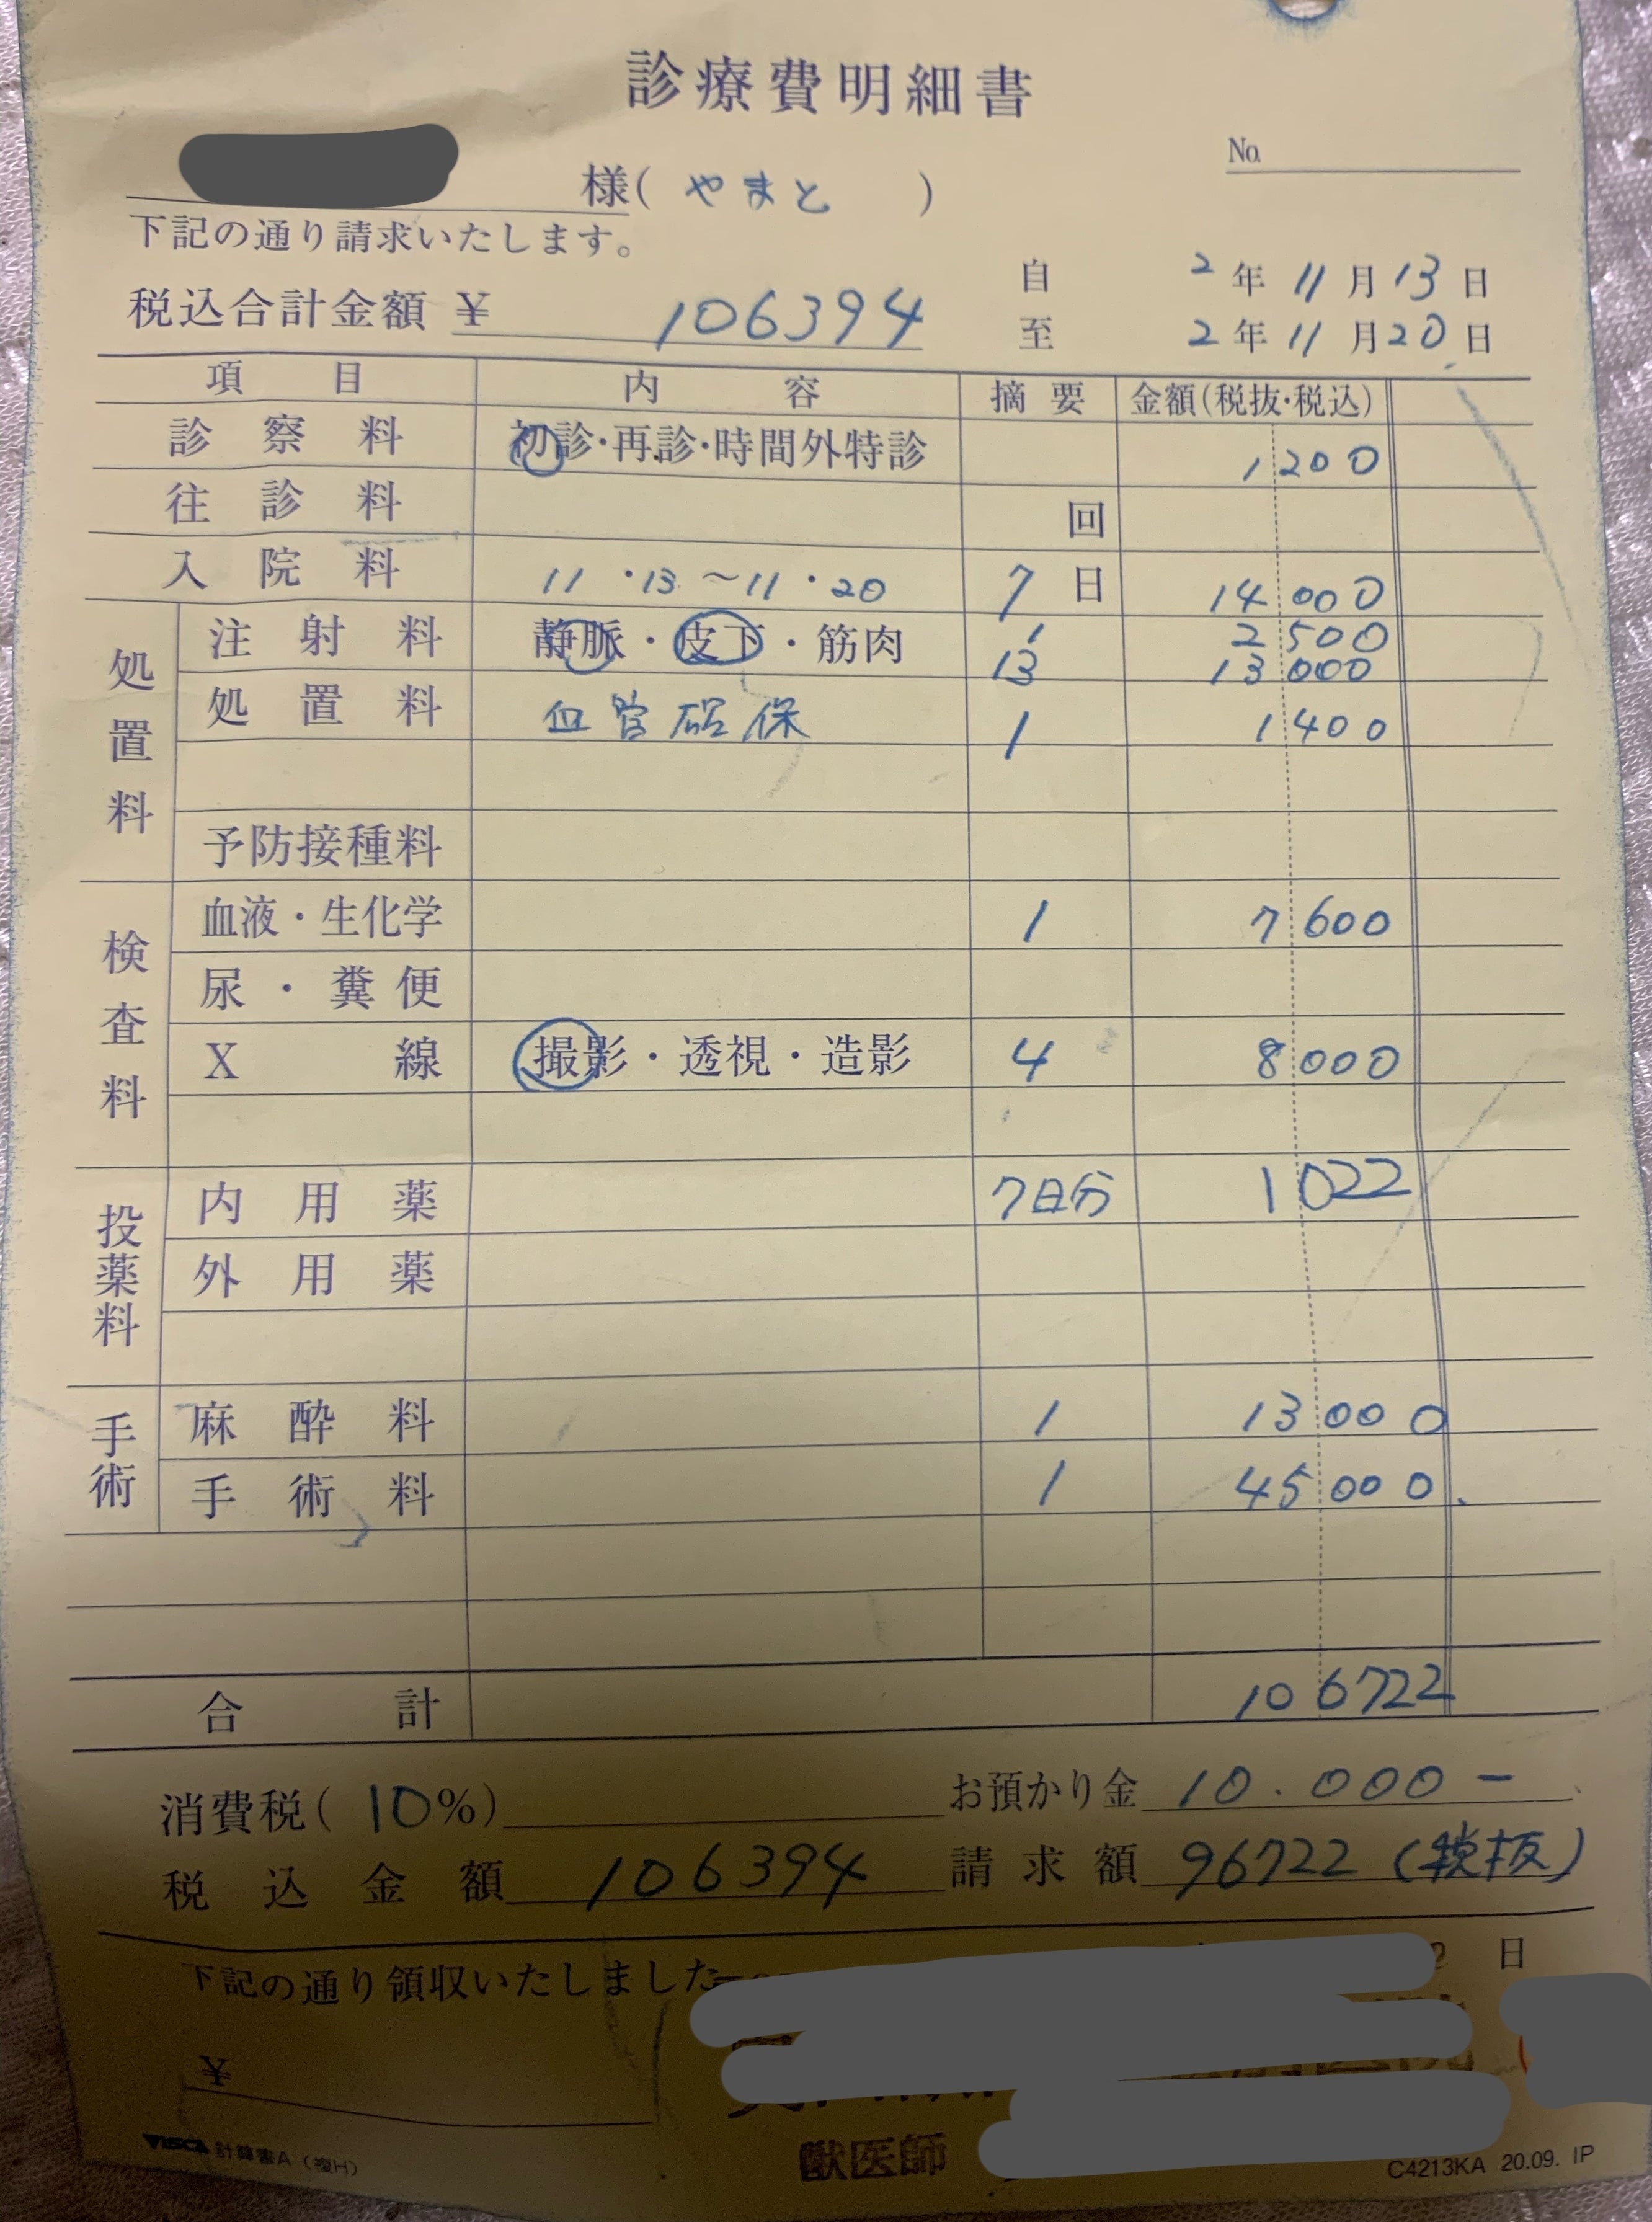 診療費明細書
No.
様(やまと)
下記の通り請求いたします。
税込合計金額 ¥ 106394
自 2年11月13日
至 2年11月20日
項目 内容 摘要 金額(税抜・税込)
診察料 初診・再診・時間外特診 1200
往診料 回
入院料 11・13～11・20 7日 14000
処置料
注射料 静脈・皮下・筋肉 1 2500
13 13000
処置料 血管確保 1 1400
予防接種料
検査料
血液・生化学 1 7600
尿・糞便
X線 撮影・透視・造影 4 8000
投薬料
内用薬 7日分 1022
外用薬
手術
麻酔料 1 13000
手術料 1 45000.
合計 106722
消費税(10%) お預かり金 10.000-
税込金額 106394 請求額 96722(税抜)
下記の通り領収いたしました
日
¥
獣医師
VISCA 計算書A(複H)
C4213KA 20.09. IP